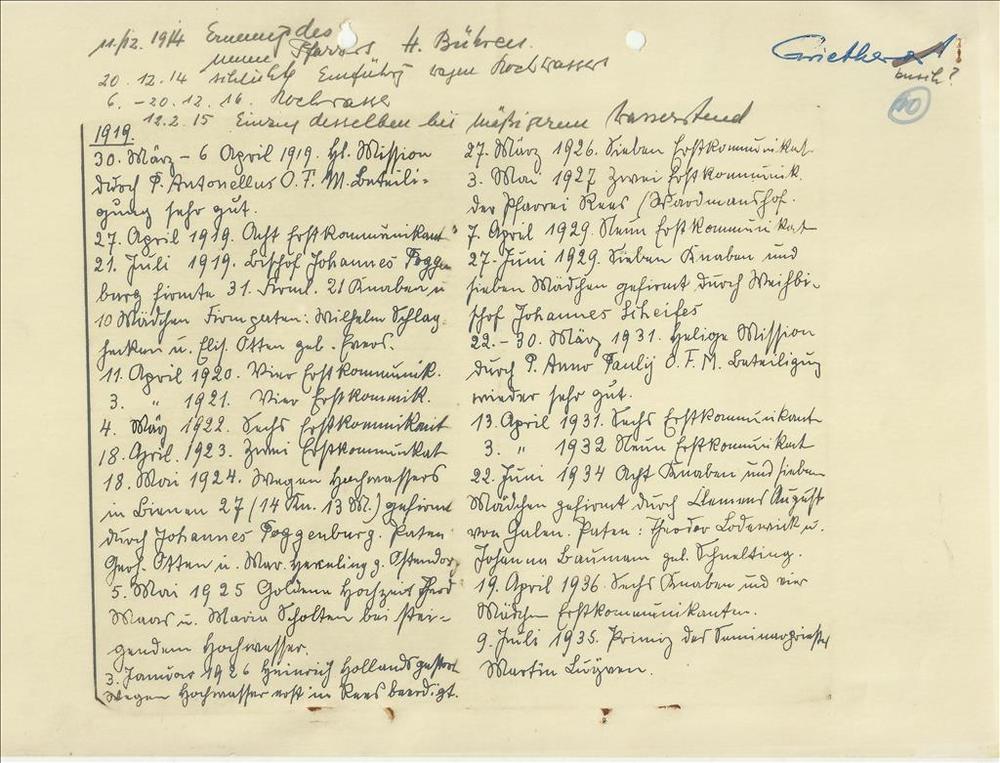 11/12. 1914 Ernennung des
neuen Pfarrers H. Bühren.
20. 12. 14 Einführg wegen Hochwassers
6. - 20. 12. 16. Hochwasser
12. 2. 15 Einzug desselben bei mäßigerem Wasserstand
Grietherort
busch?
10
1919.
30. März – 6 April 1919. Hl. Mission
durch P. Antonellus O. F. M. Beteili-
gung sehr gut.
27. April 1919. Acht Erstkommunikant
21. Juli 1919. Bischof Johannes Poggen
burg firmte 31. Firml. 21 Knaben u
10 Mädchen Firmpaten: Wilhelm Schlag
hecken u. Elis. Otten geb. Evers.
11. April 1920. Vier Erstkommunik.
3. " 1921. Vier Erstkommik.
4. März 1922. Sechs Erstkommnikant
18. April. 1923. Zwei Erstkommunikat
18. Mai 1924. Wegen Hochwassers
in Bienen 27 (14 Kn. 13 M.) gefirmt
durch Johannes Poggenburg. Paten
Gerh. Otten u. Mar. g. Ostendorp
5. Mai 1925 Goldene Hochzeit Ferd
Maas u. Maria Scholten bei stei-
gendem Hochwasser.
3. Januar 1926 Heinrich Hollands gestorb
Wegen Hochwasser erst in Rees beerdigt.
27. März 1926. Sieben Erstkommunikat
3. Mai 1927 Zwei Erstkommunik.
der Pfarrei Rees / Wardmannshof.
7. April 1929. Neun Erstkommunikat
27. Juni 1929. Sieben Knaben und
sieben Mädchen gefirmt durch Weihbi-
schof Johannes Scheifes
22. – 30. März 1931. Helige Mission
durch P. Anno Pauly O. F. M. Beteiligung
wieder sehr gut.
13. April 1931. Sechs Erstkommunikant
3. " 1932 Neun Erstkommunikat
22. Juni 1934 Acht Knaben und sieben
Mädchen gefirmt durch Clemens August
von Galen. Paten: Theodor Lodewick u.
Johanna Baumann geb. Schnelting.
19. April 1936. Sechs Knaben und vier
Mädchen Erstkommunikanten.
9. Juli 1935. Primiz des Seminarpriesters
Martin Lüyven.